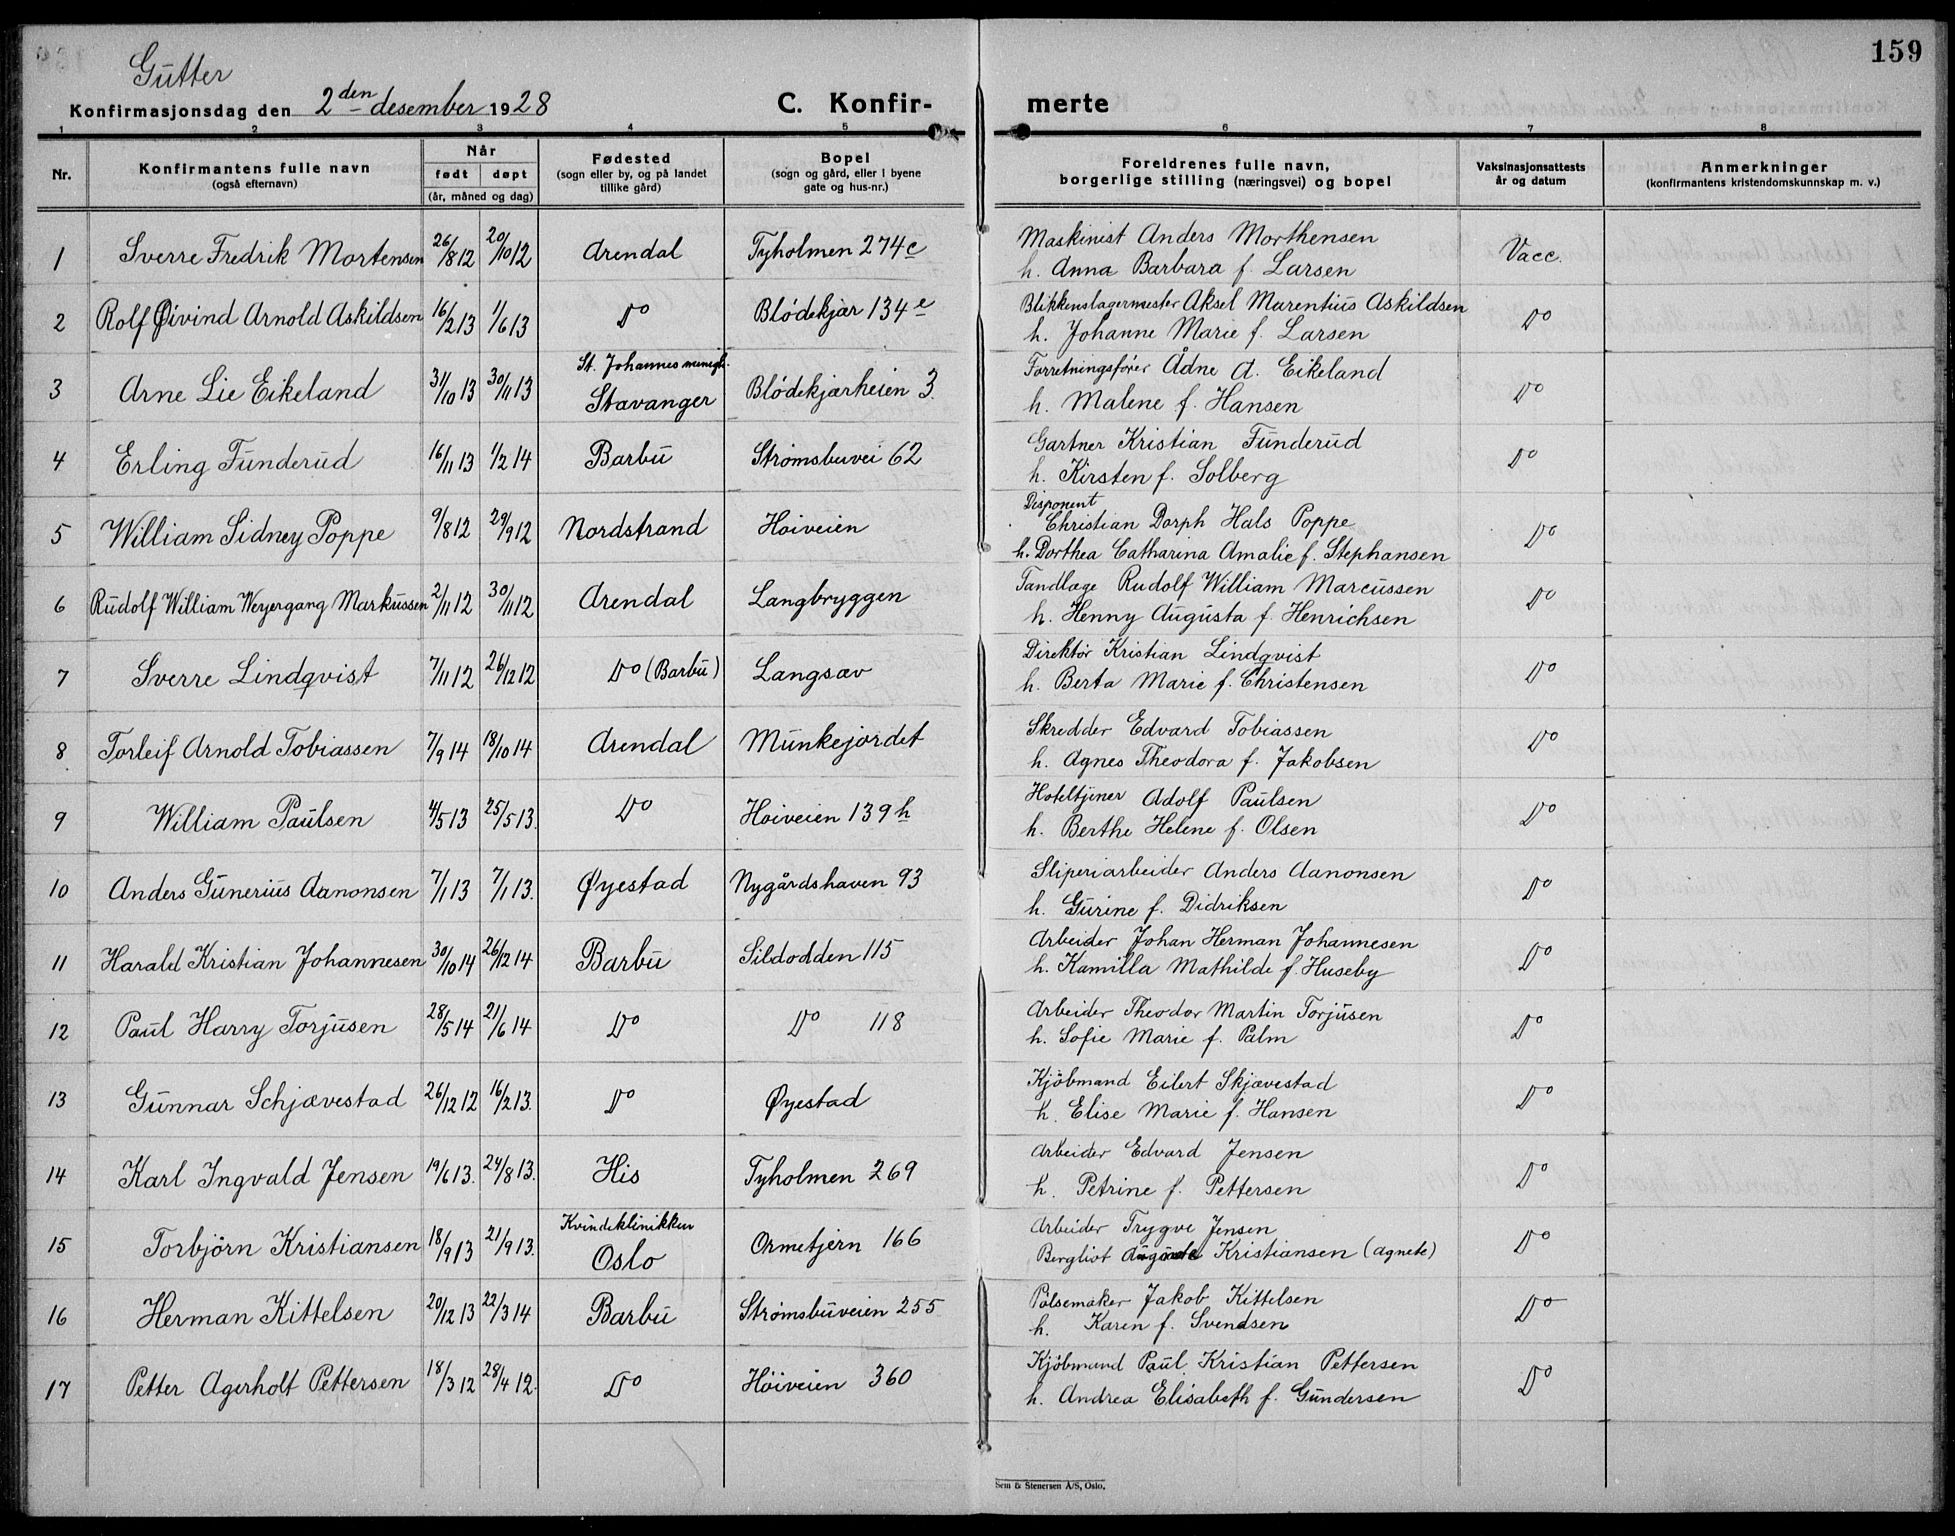 159
Gutter
Konfirmasjonsdag den 2den desember 1928
C. Konfir- merte
1 2 3 4 5 6 7 8
Nr.
Konfirmantens fulle navn
(også efternavn)
Når
født døpt
(år, måned og dag)
Fødested
(sogn eller by, og på landet
tillike gård)
Bopel
(sogn og gård, eller i byene
gate og hus-nr.)
Foreldrenes fulle navn,
borgerlige stilling (næringsvei) og bopel
Vaksinasjonsattests
år og datum
Anmerkninger
(konfirmantens kristendomskunnskap m. v.)
1 Sverre Fredrik Mortensen 26/8 12 20/10 12 Arendal Tyholmen 274c Maskinist Anders Morthensen Vacc.
h. Anna Barbara f. Larsen
2 Rolf Øivind Arnold Askildsen 16/2 13 1/6 13 Do Blödekjær 134e Blikkenslagermester Aksel Marentius Askildsen Do
h. Johanne Marie f. Larsen
3 Arne Lie Eikeland 31/10 13 30/11 13 St. Johannes menigh. Stavanger Blödekjærheien 3. Forretningsfører Ådne A. Eikeland Do
h. Malene f. Hansen
4 Erling Funderud 16/11 13 1/2 14 Barbu Strømsbuvei 62 Gartner Kristian Funderud Do
h. Kirsten f. Solberg
5 William Sidney Poppe 9/8 12 29/9 12 Nordstrand Høiveien Disponent
Christian Dorph Hals Poppe Do
h. Dorthea Catharina Amalie f. Stephansen
6 Rudolf William Weyergang Markussen 2/11 12 30/11 12 Arendal Langbryggen Tandlæge Rudolf William Marcussen Do
h. Henny Augusta f. Henrichsen
7 Sverre Lindqvist 7/11 12 26/12 12 Do (Barbu) Langsæv Direktør Kristian Lindqvist Do
h. Berta Marie f. Christensen
8 Torleif Arnold Tobiassen 7/9 14 18/10 14 Arendal Munkejordet Skredder Edvard Tobiassen Do
h. Agnes Theodora f. Jakobsen
9 William Paulsen 4/5 13 25/5 13. Do Høiveien 139h Hoteltjener Adolf Paulsen Do
h. Berthe Helene f. Olsen
10 Anders Gunerius Aanonsen 7/1 13 7/1 13. Øyestad Nygårdshaven 93 Sliperiarbeider Anders Aanonsen Do
h. Gurine f. Didriksen
11 Harald Kristian Johannesen 30/10 14 26/12 14 Barbu Sildodden 115 Arbeider Johan Herman Johannesen Do
h. Kamilla Mathilde f. Huseby
12 Paul Harry Torjusen 28/5 14 21/6 14 Do Do 118 Arbeider Theodor Martin Torjusen Do
h. Sofie Marie f. Palm
13 Gunnar Schjævestad 26/12 12 16/2 13. Do Øyestad Kjöbmand Eilert Skjævestad Do
h. Elise Marie f. Hansen
14 Karl Ingvald Jensen 19/6 13. 24/8 13. His Tyholmen 269 Arbeider Edvard Jensen Do
h. Petrine f. Pettersen
15 Torbjörn Kristiansen 18/9 13 21/9 13. Kvindeklinikken Oslo Ormetjern 166 Arbeider Trygve Jensen Do
Bergliot Kristiansen (Agnete)
16 Herman Kittelsen 20/12 13 22/3 14 Barbu Strømsbuveien 255 Pølsemaker Jakob Kittelsen Do
h. Karen f. Svendsen
17 Petter Agerholt Pettersen 18/3 12 28/4 12. Do Höiveien 360 Kjöbmand Paul Kristian Pettersen Do
h. Andrea Elisabeth f. Gundersen
Sem & Stenersen A/S, Oslo.